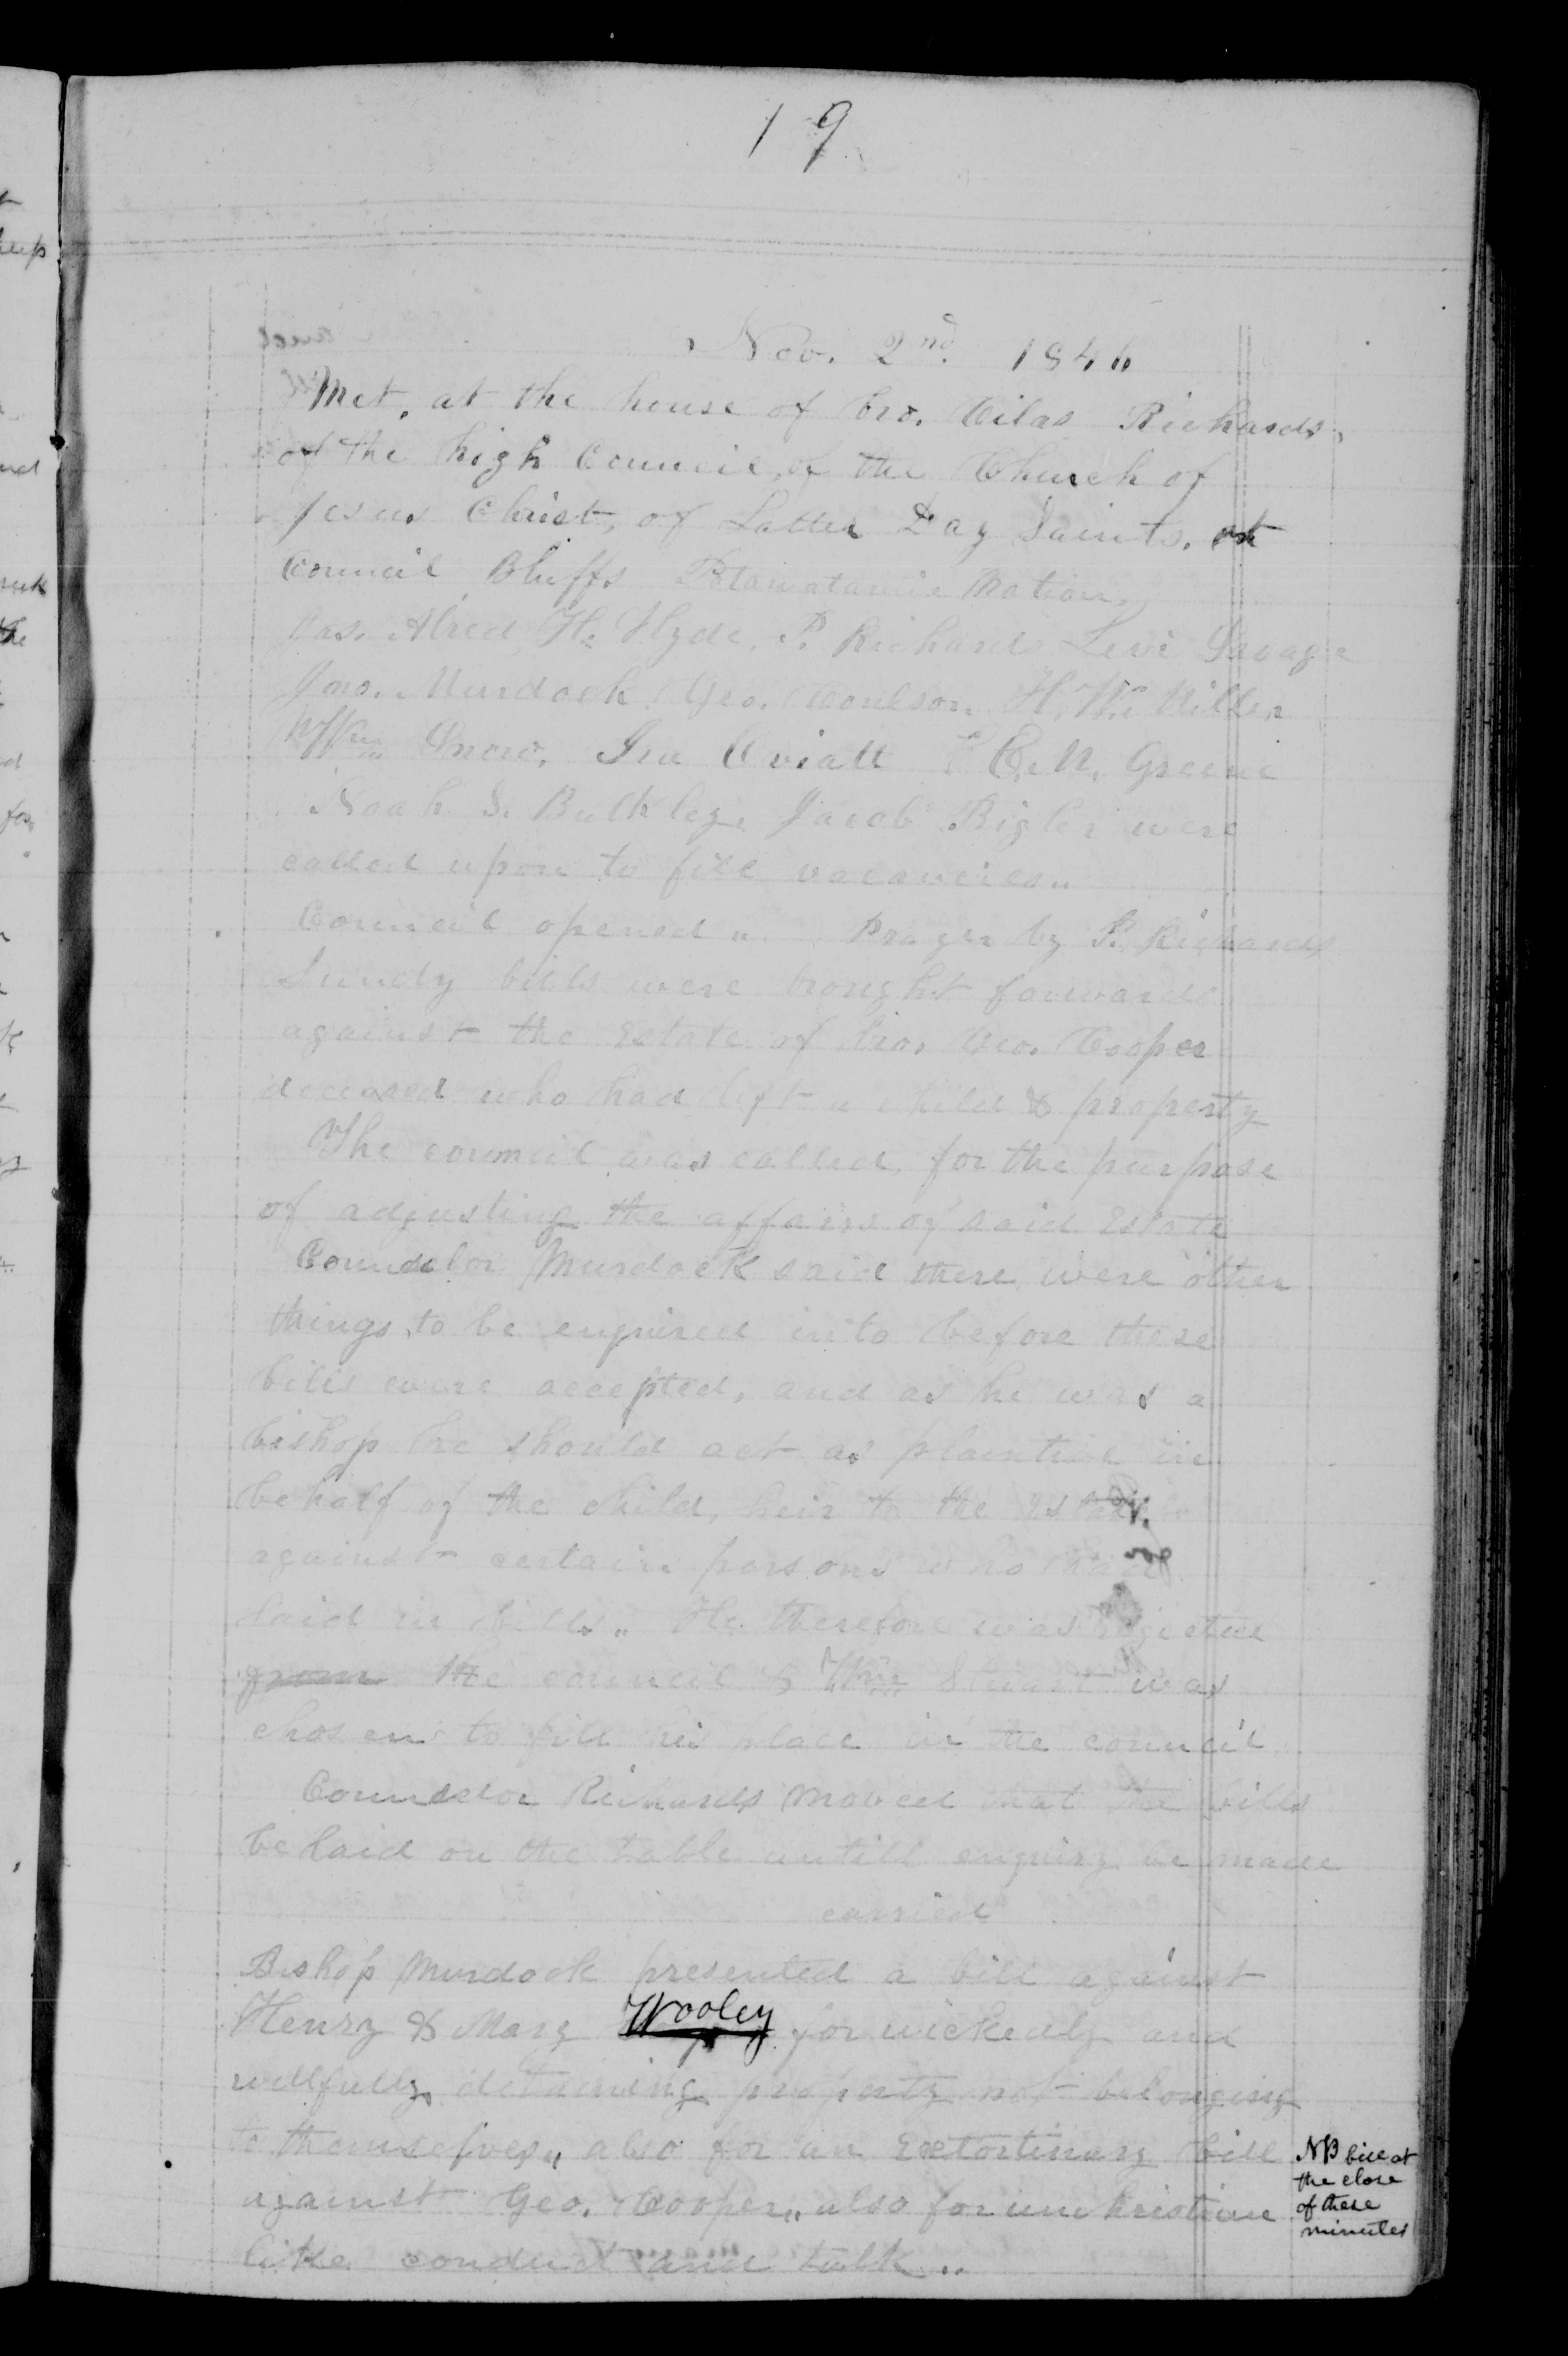 19
Nov. 2nd. 1846
Met, at the house of bro. Cilas Richards,
of the high Council, of the Church of
Jesus Christ, of Latter Day Saints. at
Council Bluffs Potawatamie Nation,
Jas. Alred, H. Hyde, P. Richards Levi Savage
Jno. Murdock, Geo. Coulson. H. W. Miller
Wm Snow. Ira Oviatt E. M. Greene
Noah S. Bulkley, Jacob Bigler were
called upon to fill vacancies,,
Council opened,, Prayer by P. Richards
Sundy bills were brought forwards
against the Estate of bro. Geo. Cooper
deceased who had left a child & property
The council was called, for the purpose
of adjusting the affairs of said Estate
Councelor Murdock said there were other
things, to be enquired into before these
bills were accepted, and as he was a
bishop he should act as plaintive in
behalf of the child, heir to the estate
against certain persons who had
laid in bills,, He therefore was rejected
from the council & Wm Stuart was
chosen to fill his place in the council
Councelor Richards moved that the bills
be laid on the table untill enquiry be made
carried
Bishop Murdock presented a bill against
Henry & Mary Wooley for wickedly and
willfully detaining property not belonging
to themselves,, also for an extortinary bill
against Geo. Cooper,, also for unchristian
like conduct and talk,,
NB bill at
the close
of these
minutes